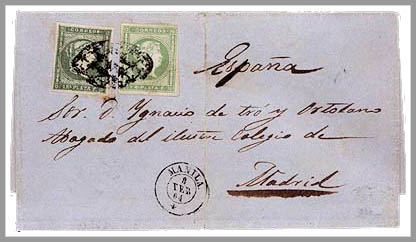 CORREOS CORREOS
España
Sr. D. Ygnacio de tró y Ortolano
Abogado del ilustre Colegio de
Madrid
MANILA
8
FEB
61